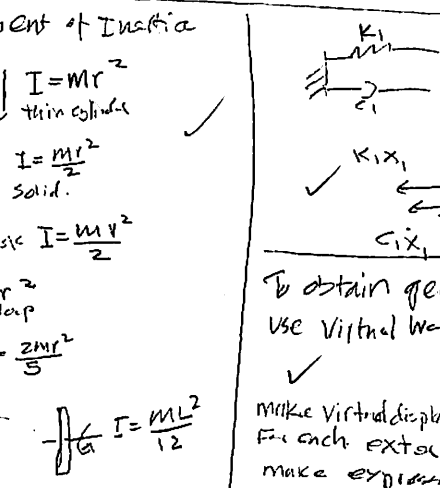 ent of Inertia
I = mr²
thin cylinder
I = mr²/2
Solid.
I = mr²/2
r²
= 2mr²/5
I = mL²/12
G
K₁
C₁
K₁x₁
C₁ẋ₁
To obtain ge
use Virtual Wo
make virtual displ
For each exte
make expres